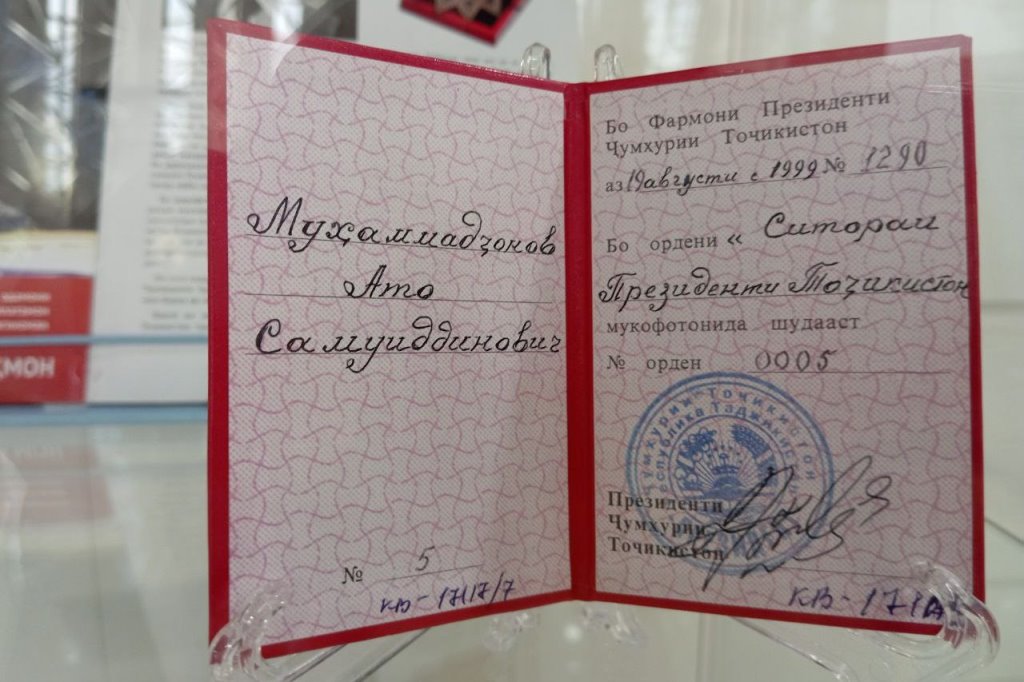 Муҳаммадҷонов
Ато
Самуиддинович
№ 5
КВ-17117/7
Бо Фармони Президенти
Ҷумҳурии Тоҷикистон
аз 19 августи с 1999 № 1290
Бо ордени « Ситораи
Президенти Тоҷикистон
мукофотонида шудааст
№ орден 0005
Президенти
Ҷумҳурии
Тоҷикистон
КВ-171